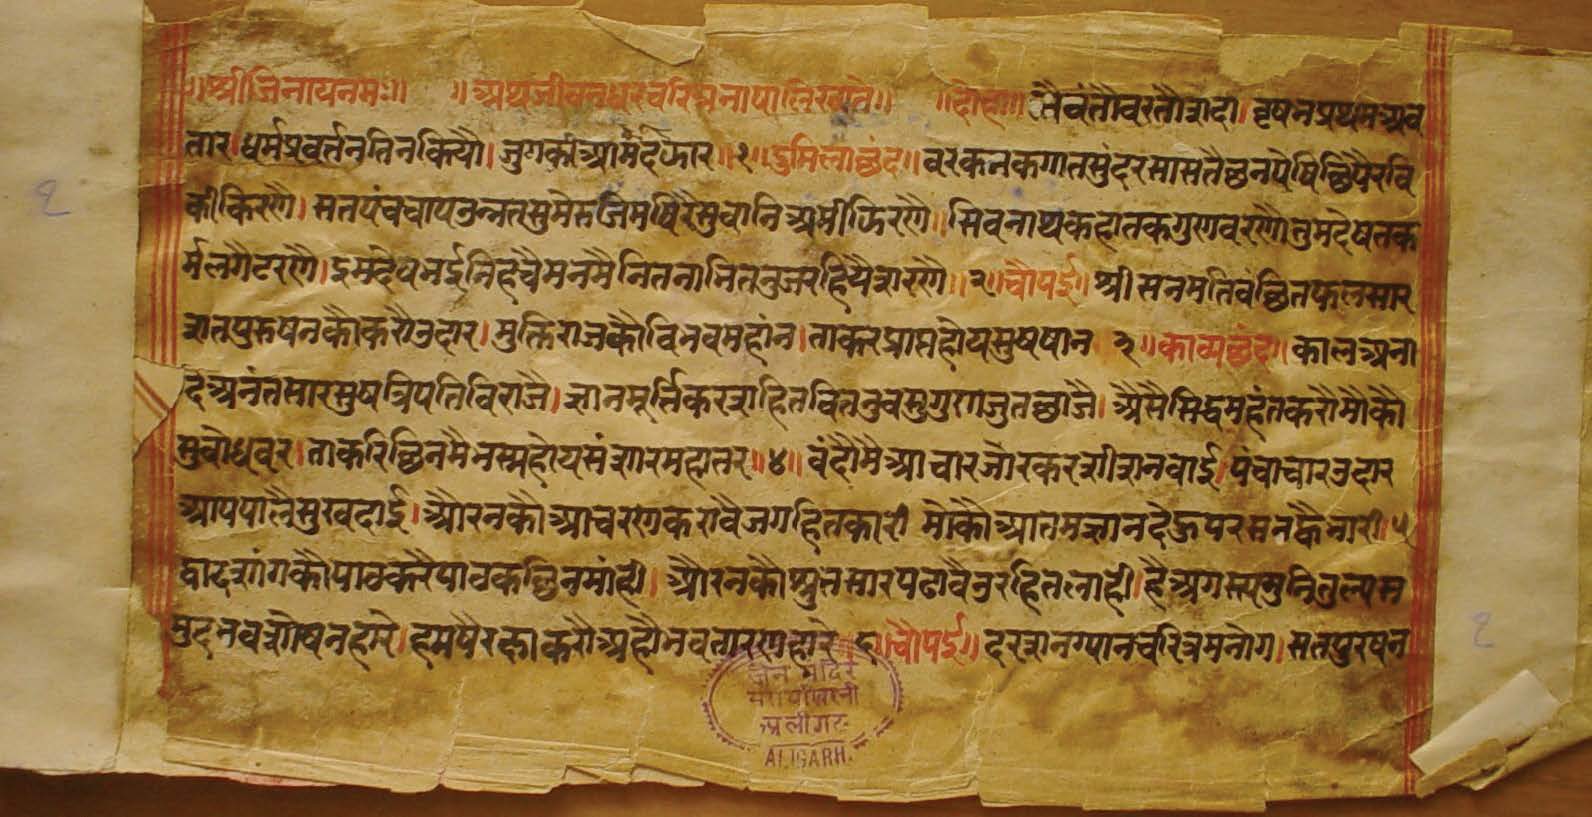 ॥श्रीजिनायनमः॥ ॥अथजीवनधरचरित्रभाषालिख्यते॥ ॥दोहा॥ जैवंतौवरतौसदा। वृषभप्रथमअव
तार।धर्मप्रवर्तनतिनकियौ। जुगकीआमंर्दफार॥१॥दुमिलाछंद॥ वरकनकगातसुंदरसासतैछनपेषिछिपैरवि
कीकिरणै। सतपंचचापउन्नतसुमेरुजिमषिरैसुवानिअमीफिरणै॥ सिवनाथकहातकगुणवरणौतुमदेषतक
र्मलगैटरणै। इमदेषभईनिहचैमनमैनितनामितनुजरहियैसरणै॥२॥चौपई॥ श्रीसनमतिवंछितफलसार
सतपुरुषनकौकरौउदार। मुक्तिराजकौविभवमहांन। ताकरप्राप्तहोयसुषषान ३॥काव्यछंद॥ कालअना
दिअनंतसारसुषत्रिपतिविराजै। ग्यानमूर्त्तिकरसहितवितनुवसुगुणजुतछाजै। औसैसिद्धमहंतकरौमोकौ
सुबोधवर। ताकरिछिनमैभस्महोयसंसारमहातर॥४॥ वंदौमैआचारजोरकरसीसनवाई। पंचाचारउदार
आपपालैसुखदाई। औरनकौआचरणकरावैजगहितकारी मोकौआतमग्यानदेऊपरमनकैनारी॥५
द्वादसांगकौपाठकरैपाठकछिनमांही। औरनकौश्रुतसारपढावैउरहितलाही। हैअगस्त्यमुनितुल्यस
मुदभवसोषनहारे। हमपैरक्षाकरौअहौभवतारणहारे ६॥चौपई॥ दरसनग्यानचरित्रमनोग। सतपुरषन
जैन मंदिर
अलीगढ
ALIGARH.